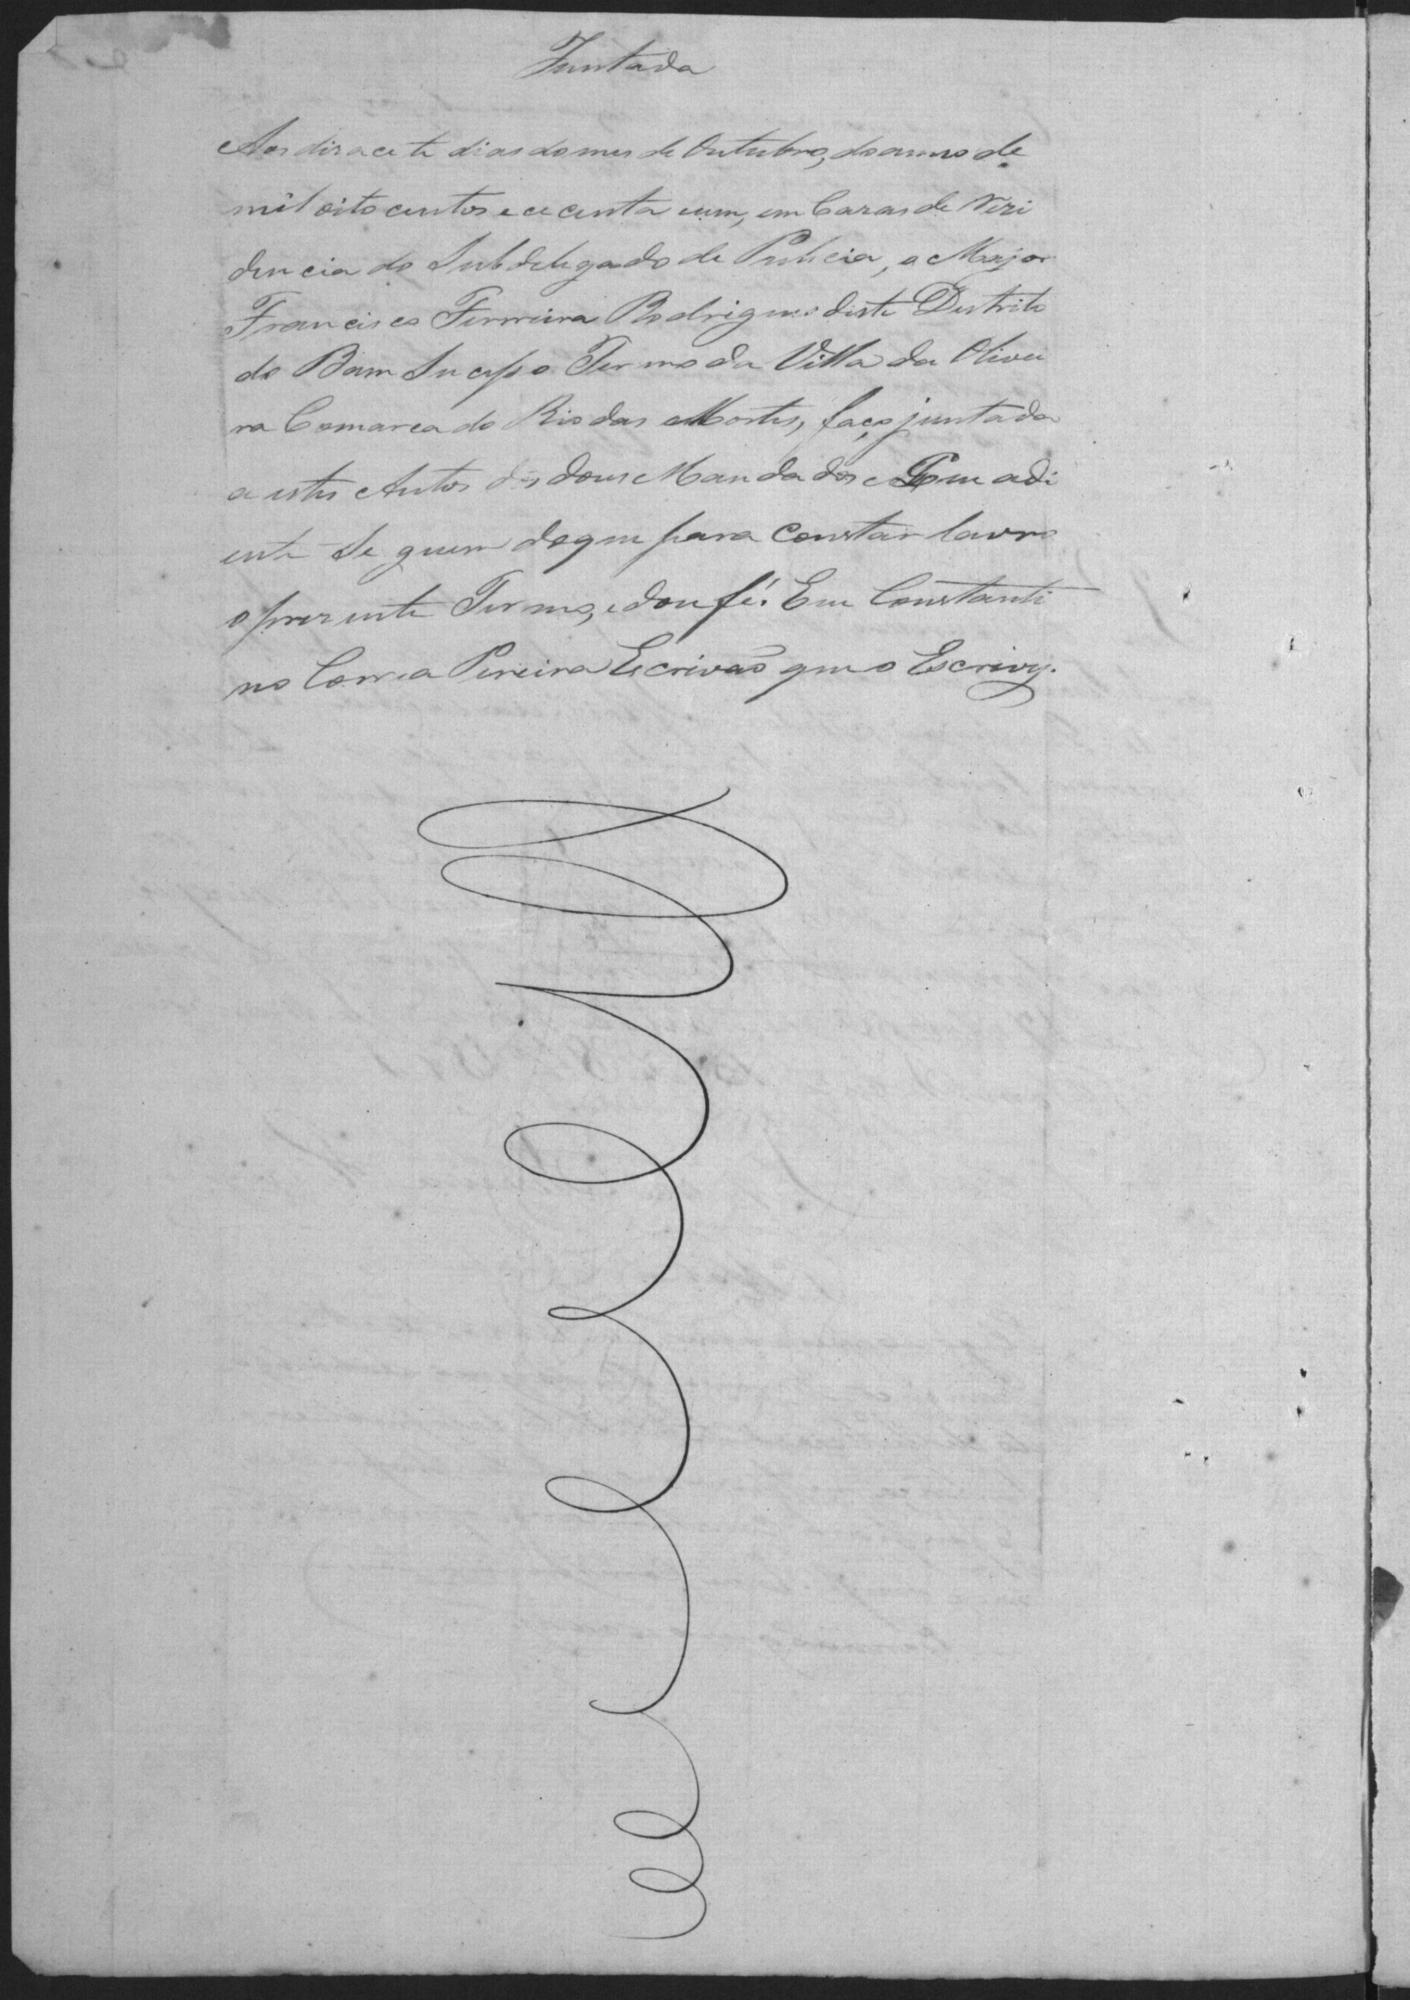 Juntada
Aos dizacete dias do mes de Outubro, do anno de
mil oito centos e cecenta eum, em Caras de Rezi
dencia do Subdelegado de Pulicia, o Major
Francisco Ferreira Rodrigues diste Destrito
do Bom Sucesso Termo da Villa da Olivei
ra Comarca do Rio das Mortes, faço juntada
a estes Autos dos dous Mandados e que adi
ente Se guem do que para Constar lavro
o prezente Termo, e dou fé. Eu Constanti
no Correa Pereira Escrivaõ que o Escrivy.